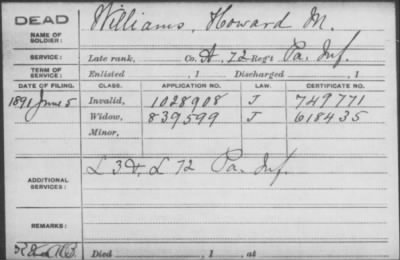 DEAD
NAME OF SOLDIER: Williams, Howard M.
SERVICE: Late rank, Co. A, 72 Reg't Pa. Inf.
TERM OF SERVICE: Enlisted , 1 Discharged , 1
DATE OF FILING. CLASS. APPLICATION NO. LAW. CERTIFICATE NO.
1891 June 5 Invalid, 1028908 J 749771
Widow, 839599 J 618435
Minor,
ADDITIONAL SERVICES: L 3 &, L 72 Pa. Inf.
REMARKS:
Died , 1 , at